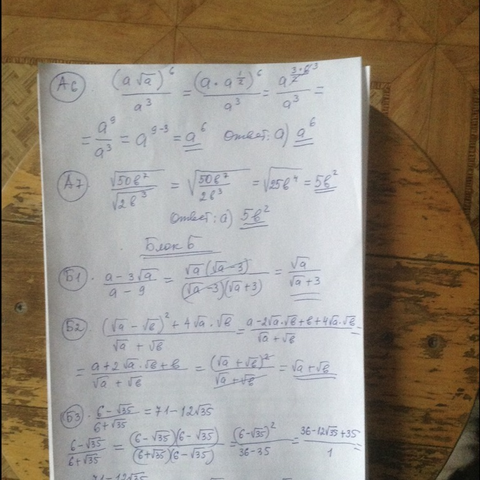 А6 (a√a)^6 / a^3 = (a · a^(1/2))^6 / a^3 = a^(3/2 · 6) / a^3 =
= a^9 / a^3 = a^(9-3) = a^6 Ответ: а) a^6
А7. √(50b^7) / √(2b^3) = √(50b^7 / 2b^3) = √(25b^4) = 5b^2
Ответ: а) 5b^2
Блок Б
Б1 · (a-3√a) / (a-9) = √a(√a-3) / (√a-3)(√a+3) = √a / (√a+3)
Б2 · ((√a-√b)^2 + 4√a·√b) / (√a+√b) = (a-2√a·√b+b+4√a·√b) / (√a+√b) =
= (a+2√a·√b+b) / (√a+√b) = (√a+√b)^2 / (√a+√b) = √a+√b
Б3 · (6-√35) / (6+√35) = 71-12√35
(6-√35) / (6+√35) = (6-√35)(6-√35) / (6+√35)(6-√35) = (6-√35)^2 / (36-35) = (36-12√35+35) / 1 =
71-12√35